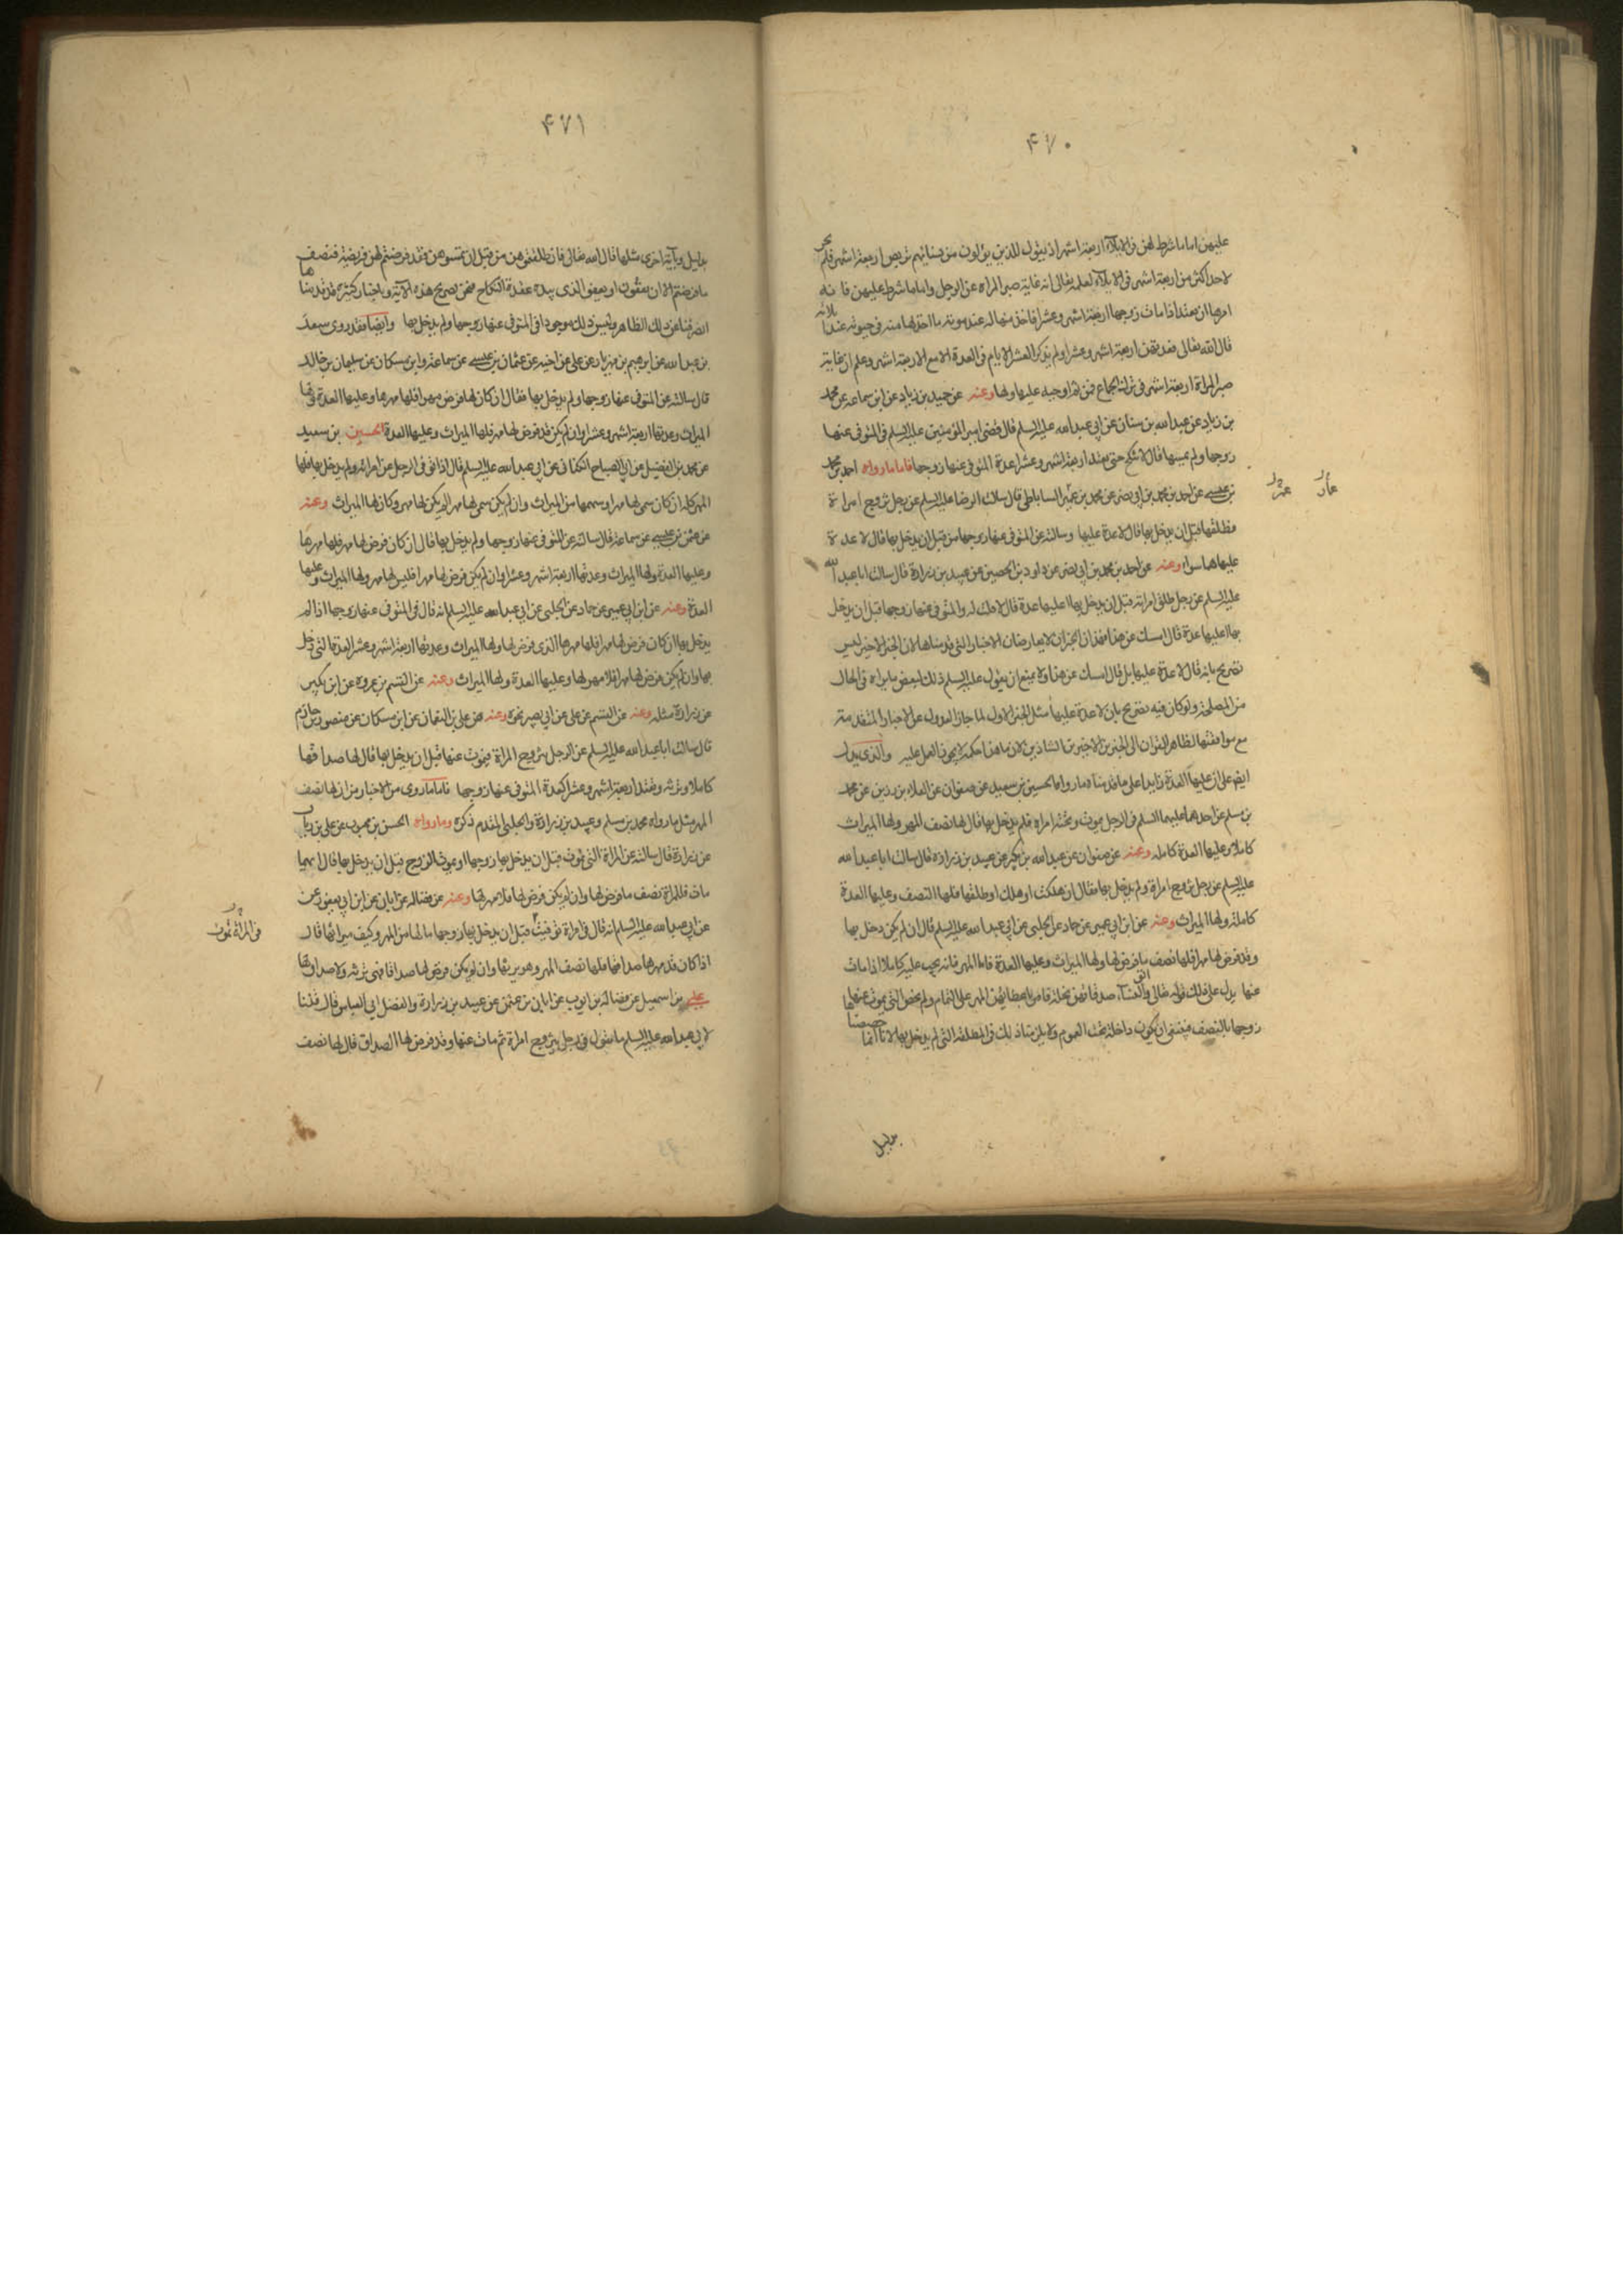 ۴۷۰
عليهن اما ما شرط لهن فى الايلاء اربعة اشهر اذ يقول للذين يؤلون من نسائهم تربص اربعة اشهر فلم يجز
لاحد اكثر من اربعة اشهر فى الايلاء لعلمه تعالى انه غاية صبر المراه عن الرجل واما ما شرط عليهن فانه
امرها ان تعتد اذا مات زوجها اربعة اشهر وعشرا فاخذ منها له عند موته ما اخذ لها منه فى حيوته عند ايلائه
قال الله تعالى يتربصن اربعة اشهر وعشرا ولم يذكر العشرة الايام فى العدة الا مع الاربعة اشهر وعلم ان غاية
صبر المراة اربعة اشهر فى ترك الجماع فمن ثم اوجبه عليها ولها وعنه عن حميد بن زياد عن ابن سماعه عن محمد
بن زياد عن عبد الله بن سنان عن ابى عبد الله عليه السلم قال قضى امير المؤمنين عليه السلم فى المتوفى عنها
زوجها ولم يمسها قال لا تنكح حتى تعتد اربعة اشهر وعشرا عدة المتوفى عنها زوجها فاما ما رواه احمد بن محمد
بن عيسى عن احمد بن محمد بن ابى نصر عن محمد بن عمير الساباطى قال سالت الرضا عليه السلم عن رجل تزوج امراة
فطلقها قبل ان يدخل بها قال لا عدة عليها وسالته عن المتوفى عنها زوجها من قبل ان يدخل بها قال لا عدة
عليها هما سواء وعنه عن احمد بن محمد بن ابى نصر عن داود بن الحصين عن عبيد بن زرارة قال سالت ابا عبد الله
عليه السلم عن رجل طلق امراته قبل ان يدخل بها اعليها عدة قال لا قلت له والمتوفى عنها زوجها قبل ان يدخل
بها اعليها عدة قال امسك عن هذا فهذان الخبران لا يعارضان الاخبار التى قدمناها لان الخبر الاخير ليس
تصريح بانه قال لا عدة عليها بل قال امسك عن هذا ولا يمتنع ان يقول عليه السلم ذلك لبعض ما يراه فى الحال
من المصلحة ولو كان فيه تصريح بان لا عدة عليها مثل الخبر الاول لما جاز العدول عن الاخبار المتقدمة
مع موافقتها لظاهر القران الى الخبرين الاخيرين الشاذين لان ما هذا حكمه لا يجوز العمل عليه والذى يدل
ايضا على ان عليها العدة زايدا على ما قدمناه ما رواه الحسين بن سعيد عن صفوان عن العلاء بن رزين عن محمد
بن مسلم عن احدهما عليهما السلم فى الرجل يموت وتحته امراه فلم يدخل بها قال لها نصف المهر ولها الميراث
كاملا وعليها العدة كامله وعنه عن صفوان عن عبد الله بن بكير عن عبيد بن زراره قال سالت ابا عبد الله
عليه السلم عن رجل تزوج امراة ولم يدخل بها فقال ان هلكت او هلك او طلقها فلها النصف وعليها العدة
كاملة ولها الميراث وعنه عن ابن ابى عمير عن حماد عن الحلبى عن ابى عبد الله عليه السلم قال ان لم يكن دخل بها
وقد فرض لها مهرا فلها نصف ما فرض لها ولها الميراث وعليها العدة فاما المهر فانه يجب عليه كاملا اذا مات
عنها يدل على ذلك قوله تعالى واتوا النساء صدقاتهن نحلة فامر باعطائهن المهر على التمام ولم يخص التى يموت عنها
زوجها بالنصف فينبغى ان يكون داخلة تحت العموم ولا يلزمنا ذلك فى المطلقة التى لم يدخل بها لانا انما خصصناها
بدليل
۴۷۱
بدليل وبآية اخرى مثلها قال الله تعالى فان طلقتموهن من قبل ان تمسوهن وقد فرضتم لهن فريضة فنصف
ما فرضتم الا ان يعفون او يعفو الذى بيده عقدة النكاح فنحن بصريح هذه الآية وباخبار كثيرة قدمناها
انصرفنا عن ذلك الظاهر وليس ذلك موجودا فى المتوفى عنها زوجها ولم يدخل بها وايضا فقد روى سعد
بن عبد الله عن ابرهيم بن مهزيار عن على عن اخيه عن عثمان بن عيسى عن سماعة وابن مسكان عن سليمان بن خالد
قال سالته عن المتوفى عنها زوجها ولم يدخل بها فقال ان كان لها فرض مهرا فلها مهرها وعليها العدة ولها
الميراث وعدتها اربعة اشهر وعشرا وان لم يكن قد فرض لها مهر فلها الميراث وعليها العدة الحسين بن سعيد
عن محمد بن الفضيل عن ابى الصباح الكنانى عن ابى عبد الله عليه السلم قال اذا توفى الرجل عن امراته ولم يدخل بها فلها
المهر كله ان كان سمى لها مهرا وسهمها من الميراث وان لم يكن سمى لها مهرا لم يكن لها مهر وكان لها الميراث وعنه
عن عثمن بن عيسى عن سماعة قال سالته عن المتوفى عنها زوجها ولم يدخل بها قال ان كان فرض لها مهر فلها مهرها
وعليها العدة ولها الميراث وعدتها اربعة اشهر وعشرا وان لم يكن فرض لها مهرا فليس لها مهر ولها الميراث وعليها
العدة وعنه عن ابن ابى عمير عن حماد عن الحلبى عن ابى عبد الله عليه السلم انه قال فى المتوفى عنها زوجها اذا لم
يدخل بها ان كان فرض لها مهرا فلها مهرها الذى فرض لها ولها الميراث وعدتها اربعة اشهر وعشرا كعدة التى دخل
بها وان لم يكن فرض لها مهرا فلا مهر لها وعليها العدة ولها الميراث وعنه عن القسم بن عروه عن ابن بكير
عن زرارة مثله وعنه عن القسم عن على عن ابى بصير نحوه وعنه عن على بن النعمان عن ابن مسكان عن منصور بن حازم
قال سالت ابا عبد الله عليه السلم عن الرجل يتزوج المراة فيموت عنها قبل ان يدخل بها قال لها صداقها
كاملا وترثه وتعتد اربعة اشهر وعشرا كعدة المتوفى عنها زوجها فاما ما روى من الاخبار من ان لها نصف
المهر مثل ما رواه محمد بن مسلم وعبيد بن زرارة والحلبى المقدم ذكره وما رواه الحسن بن محبوب عن على بن رياب
عن زرارة قال سالته عن المراة التى تموت قبل ان يدخل بها زوجها او يموت الزوج قبل ان يدخل بها قال ايهما
مات فللمراة نصف ما فرض لها وان لم يكن فرض لها فلا مهر لها وعنه عن فضاله عن ابان عن ابن ابى يعفور عن
عن ابى عبد الله عليه السلم انه قال فى امراة توفيت قبل ان يدخل بها زوجها ما لها من المهر وكيف ميراثها قال
اذا كان قد مهرها صداقها فلها نصف المهر وهو يرثها وان لم يكن فرض لها صداقا فهى ترثه ولا صداق لها
على بن اسمعيل عن فضالة بن ايوب عن ابان بن عثمن عن عبيد بن زرارة والفضل ابى العباس قال قلنا
لابى عبد الله عليه السلم ما تقول فى رجل يتزوج امراة ثم مات عنها وقد فرض لها الصداق قال لها نصف
فى المراة تموت